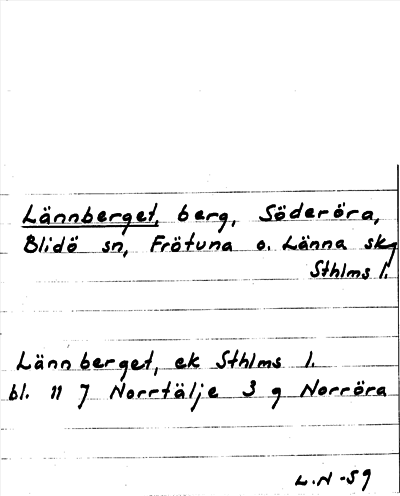 Lännberget, berg, Söderöra,
Blidö sn, Frötuna o. Länna skg
Sthlms l.
Lännberget, ek Sthlms l.
bl. 11 J Norrtälje 3 g Norröra
L.N -59